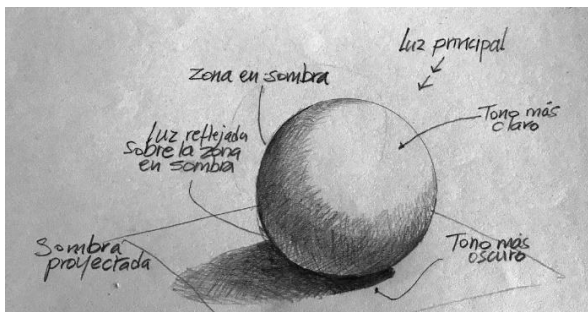 Luz principal
zona en sombra
Tono más
claro
Luz reflejada
sobre la zona
en sombra
Sombra
proyectada
Tono más
oscuro